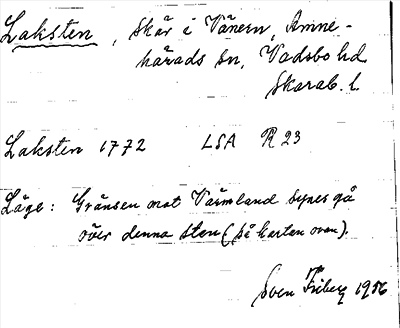 Laksten, skär i Vänern, Amne-
härads sn, Vadsbo hd
Skarab. l.
Laksten 1772 LSA R 23
Läge: Gränsen mot Värmland synes gå
över denna sten (på karten ovan).
Sven Friberg 1956